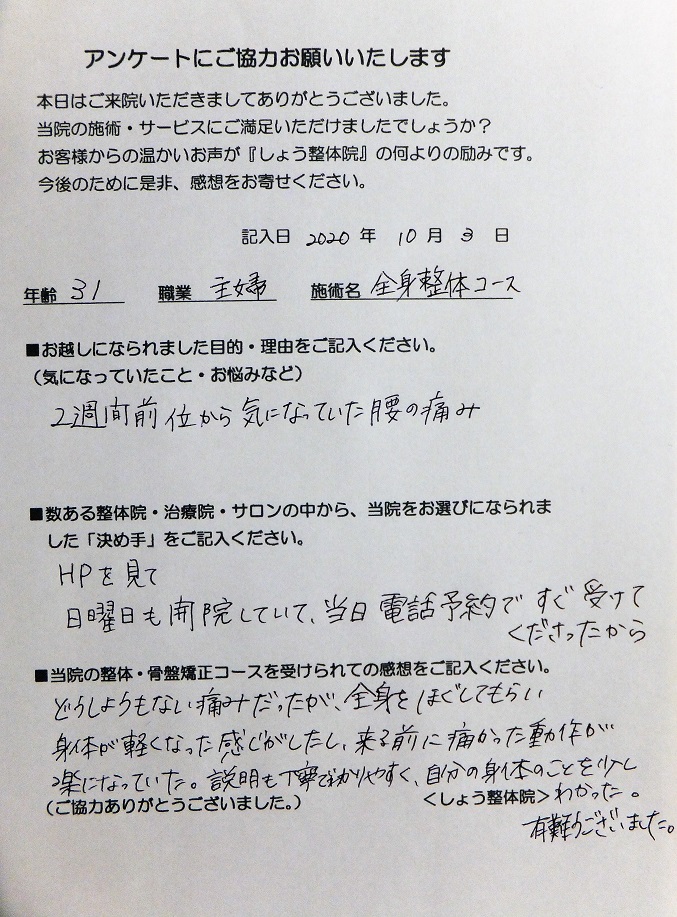 アンケートにご協力お願いいたします
本日はご来院いただきましてありがとうございました。
当院の施術・サービスにご満足いただけましたでしょうか？
お客様からの温かいお声が『しょう整体院』の何よりの励みです。
今後のために是非、感想をお寄せください。
記入日 2020 年 10 月 3 日
年齢 31 職業 主婦 施術名 全身整体コース
■お越しになられました目的・理由をご記入ください。
（気になっていたこと・お悩みなど）
2週間前位から気になっていた腰の痛み
■数ある整体院・治療院・サロンの中から、当院をお選びになられま
した「決め手」をご記入ください。
HPを見て
日曜日も開院していて、当日電話予約ですぐ受けて
くださったから
■当院の整体・骨盤矯正コースを受けられての感想をご記入ください。
どうしようもない痛みだったが、全身をほぐしてもらい
身体が軽くなった感じがしたし、来る前に痛かった動作が
楽になっていた。説明も丁寧で分かりやすく、自分の身体のことを少し
わかった。
（ご協力ありがとうございました。） ＜しょう整体院＞
有難うございました。